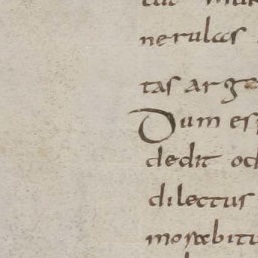 nerulas
tas arge
Dum es
dedit od
dilectus
morabitu